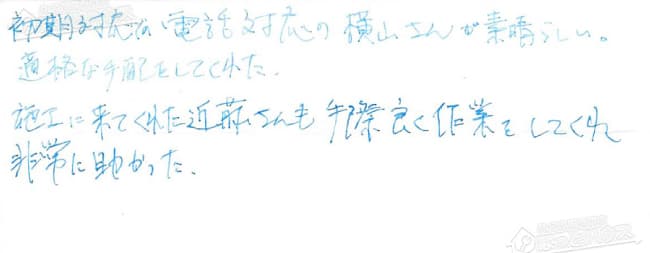 初期対応の電話対応の横山さんが素晴らしい。
適格な手配をしてくれた。
施工に来てくれた近藤さんも手際良く作業をしてくれ
非常に助かった。